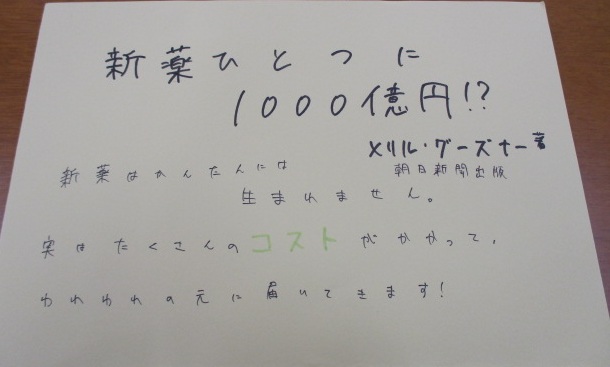 新薬ひとつに
1000億円!?
メリル・グーズナー著
朝日新聞出版
新薬はかんたんには
生まれません。
実はたくさんのコストがかかって、
われわれの元に届いてきます!